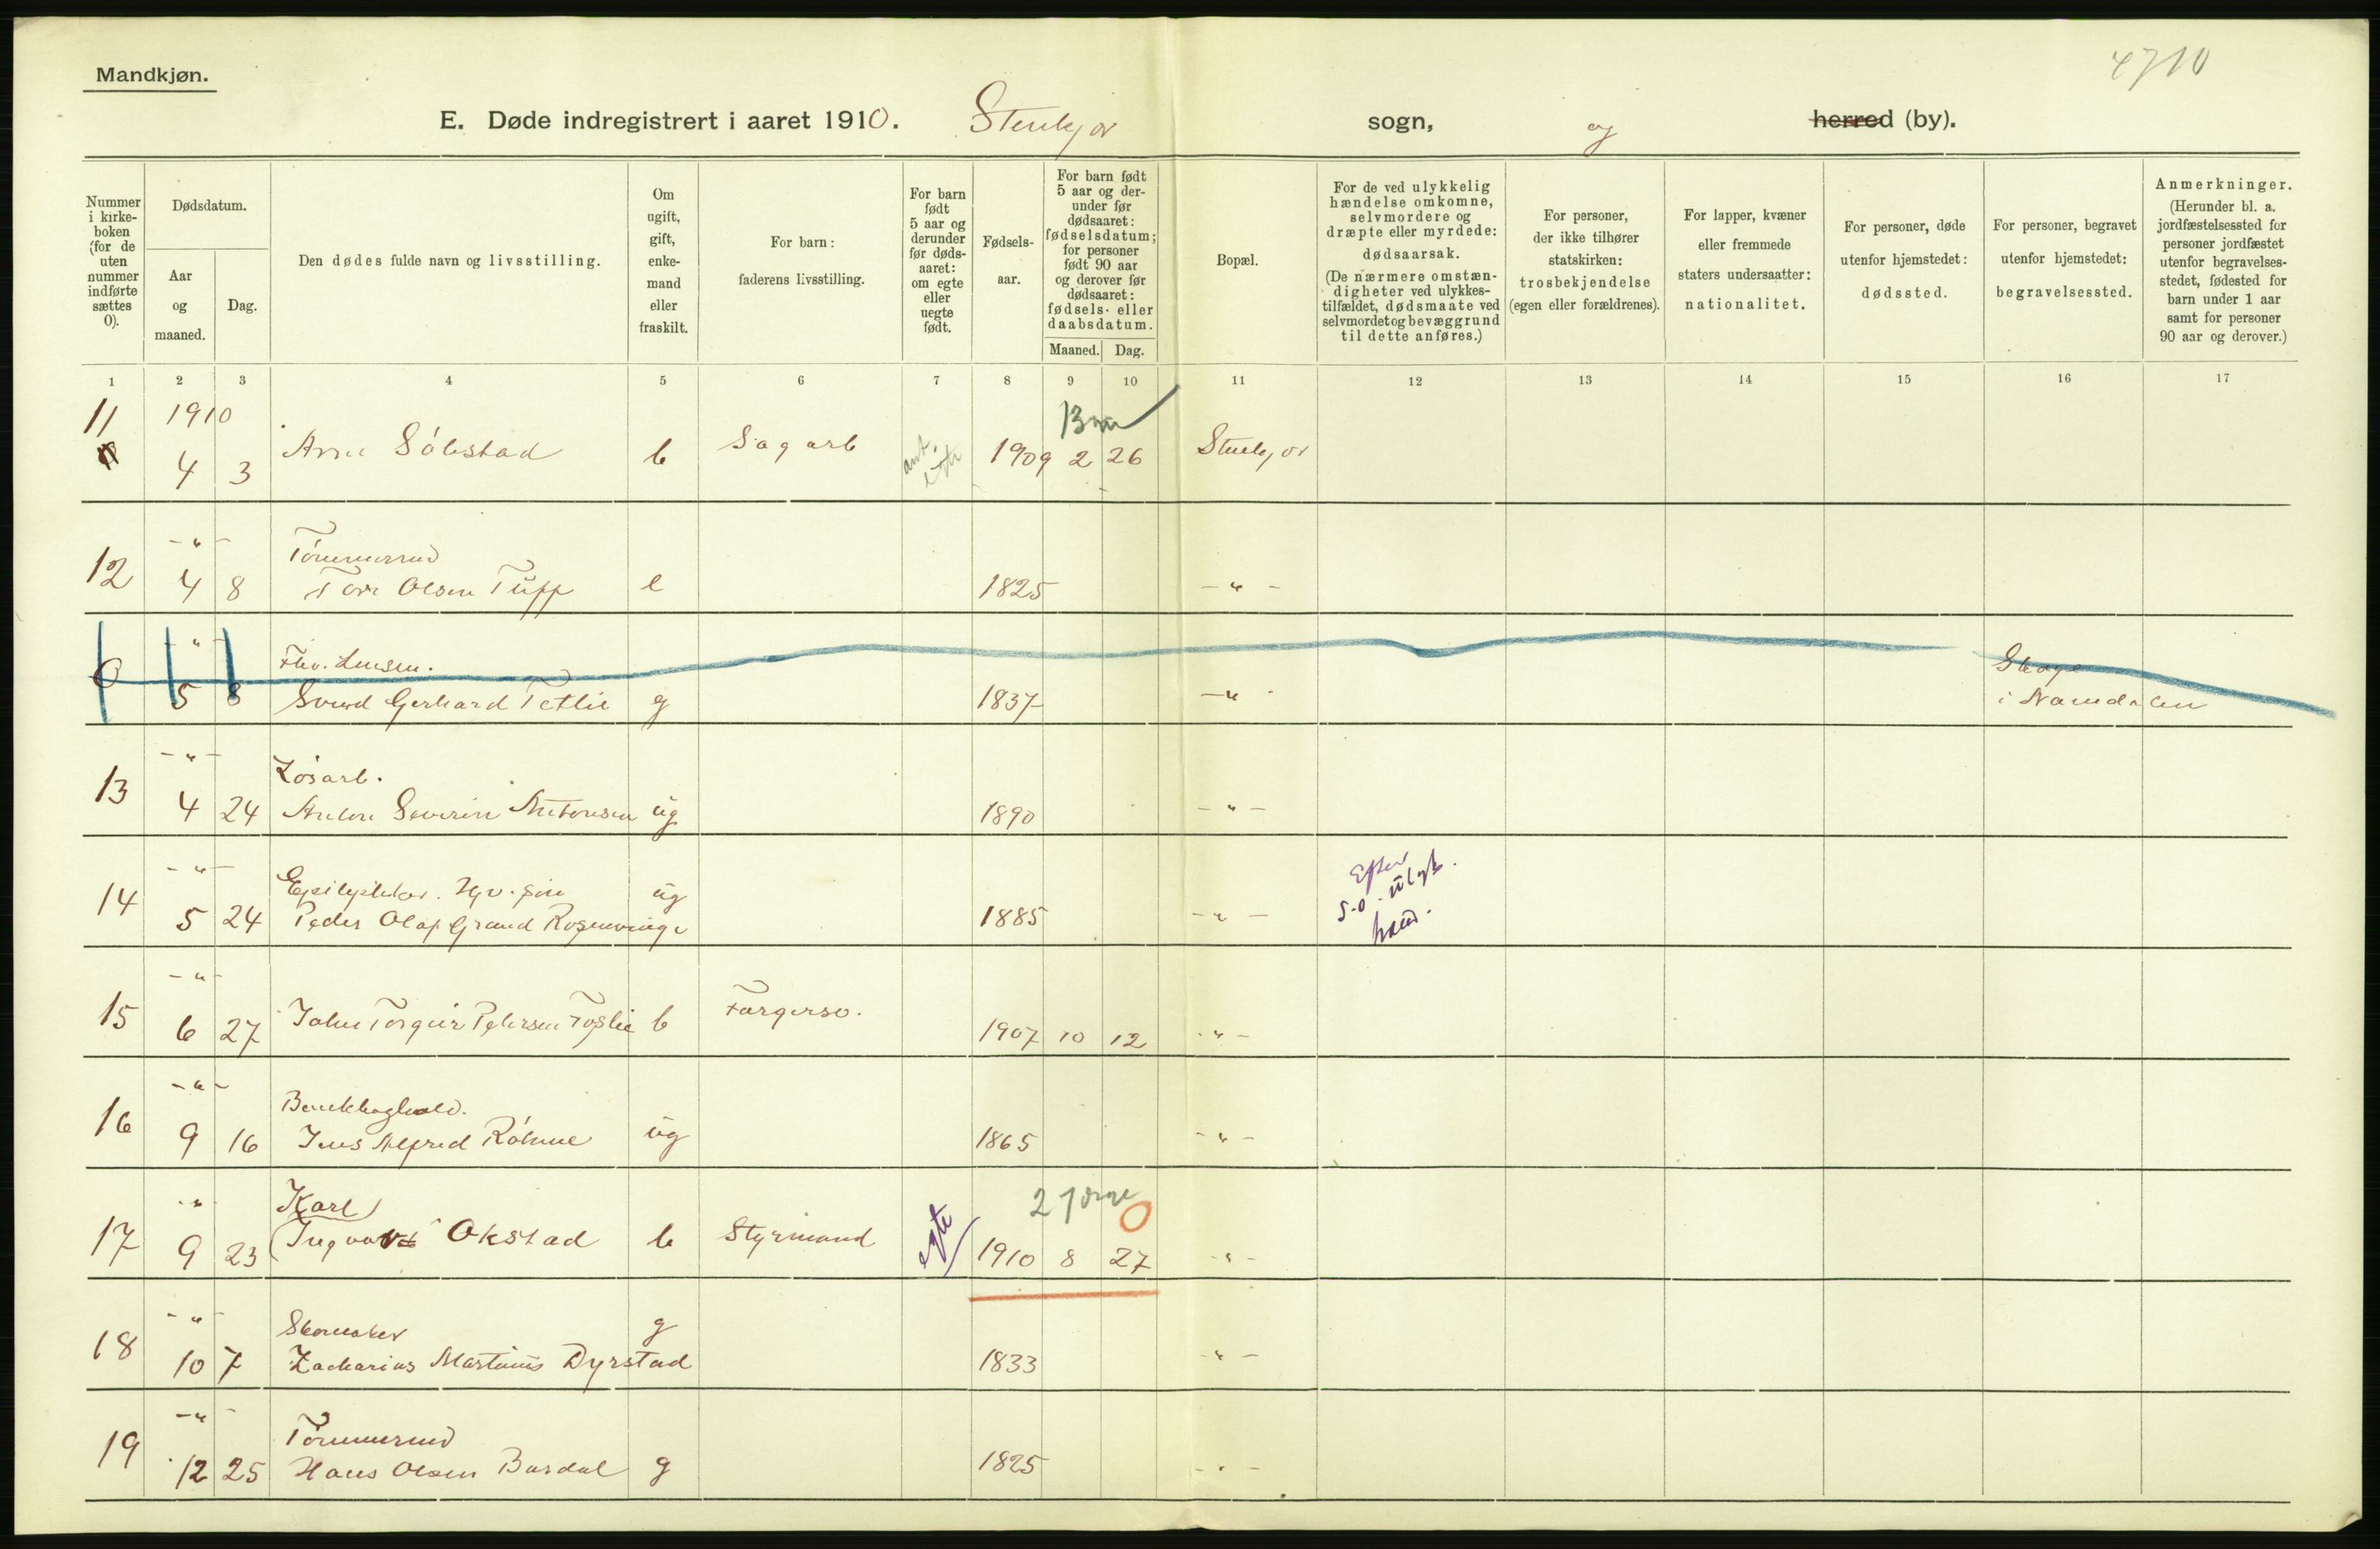 Mandkjøn.
4710
E. Døde indregistrert i aaret 1910. Stenkjør sogn, og herred (by).
Nummer i kirke-boken (for de uten nummer indførte sættes 0).
Dødsdatum.
Aar og maaned.
Dag.
Den dødes fulde navn og livsstilling.
Om ugift, gift, enke-mand eller fraskilt.
For barn: faderens livsstilling.
For barn født 5 aar og derunder før døds-aaret: om egte eller uegte født.
Fødsels-aar.
For barn født 5 aar og der-under før dødsaaret: fødselsdatum; for personer født 90 aar og derover før dødsaaret: fødsels- eller daabsdatum.
Maaned. Dag.
Bopæl.
For de ved ulykkelig hændelse omkomne, selvmordere og dræpte eller myrdede: dødsaarsak. (De nærmere omstæn-digheter ved ulykkes-tilfældet, dødsmaate ved selvmordet og bevæggrund til dette anføres.)
For personer, der ikke tilhører statskirken: trosbekjendelse (egen eller forældrenes).
For lapper, kvæner eller fremmede staters undersaatter: nationalitet.
For personer, døde utenfor hjemstedet: dødssted.
For personer, begravet utenfor hjemstedet: begravelsessted.
Anmerkninger. (Herunder bl. a. jordfæstelsessted for personer jordfæstet utenfor begravelses-stedet, fødested for barn under 1 aar samt for personer 90 aar og derover.)
1 2 3 4 5 6 7 8 9 10 11 12 13 14 15 16 17
11 1910
4 3 Arne Sölistad b Sagarb ant. egte 1909 2 26 Stenkjør
12 -"- Tömmermd
4 8 Tore Olsen Tuff e 1825 -"-
0 " Fhv. Lensm.
5 8 Svend Gerhard Tetlie g 1837 -"- Skage
i Namdalen
13 -"- Løsarb.
4 24 Anton Severin Antonsen ug 1890 -"-
14 -"- Epileptiker. Hjv. søn ug
5 24 Peder Olaf Grand Rosenvinge 1885 -"-
Efter
15 -"-
6 27 John Torgeir Petersen Foslie b Fargerso. 1907 10 12 -"-
16 -"- Bankboghold.
9 16 Jens Alfred Röhme ug 1865 -"-
17 -"- Karl
9 23 (Ingvard Okstad b Styrmand egte 1910 8 27 -"-
18 -"- Skomaker g
10 7 Zacharias Martinus Dyrstad 1833 -"-
19 -"- Tömmermd
12 25 Hans Olsen Bardal g 1825 -"-